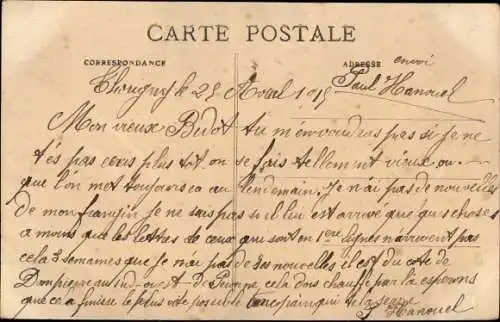 CARTE POSTALE
CORRESPONDANCE
ADRESSE envoi
Thougny le 25 Avril 1915 Paul Hanouel
Mon vieux Bidot tu m'en voudras pas si je ne
t'es pas ecris plus tot on se fais tellement vieux ou
que l'on met toujours ca au lendemain. Je n'ai pas de nouvelles
de mon frangin je ne sais pas si il lui est arrivé quelques choses
a moins que les lettres de ceux qui sont en 1ere lignes n'arrivent pas
cela 3 semaines que je n'ai pas de ses nouvelles il est du coté de
Dompierre au sud-ouest de Peronne, cela dois chauffer par la esperons
que ce a finisse le plus vite possible ton copain qui te la serre
P Hanouel